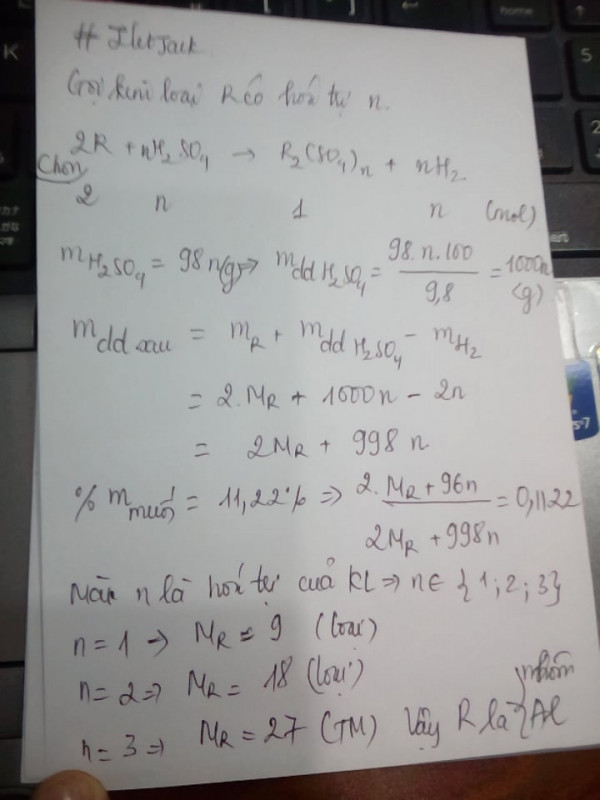 # JletJack
Gọi kim loại R có hoá trị n.
2R + nH₂SO₄ → R₂(SO₄)ₙ + nH₂
Chọn
2 n 1 n (mol)
m H₂SO₄ = 98n(g) ⇒ m dd H₂SO₄ = 98.n.100 / 9,8 = 1000n (g)
m dd sau = m R + m dd H₂SO₄ - m H₂
= 2.M R + 1000n - 2n
= 2M R + 998 n
% m muối = 11,22% ⇒ 2.M R + 96n / 2M R + 998n = 0,1122
Mà n là hoá trị của KL ⇒ n ∈ {1; 2; 3}
n = 1 → M R = 9 (loại)
n = 2 ⇒ M R = 18 (loại)
n = 3 ⇒ M R = 27 (TM) Vậy R là { nhôm Al
home
K
5